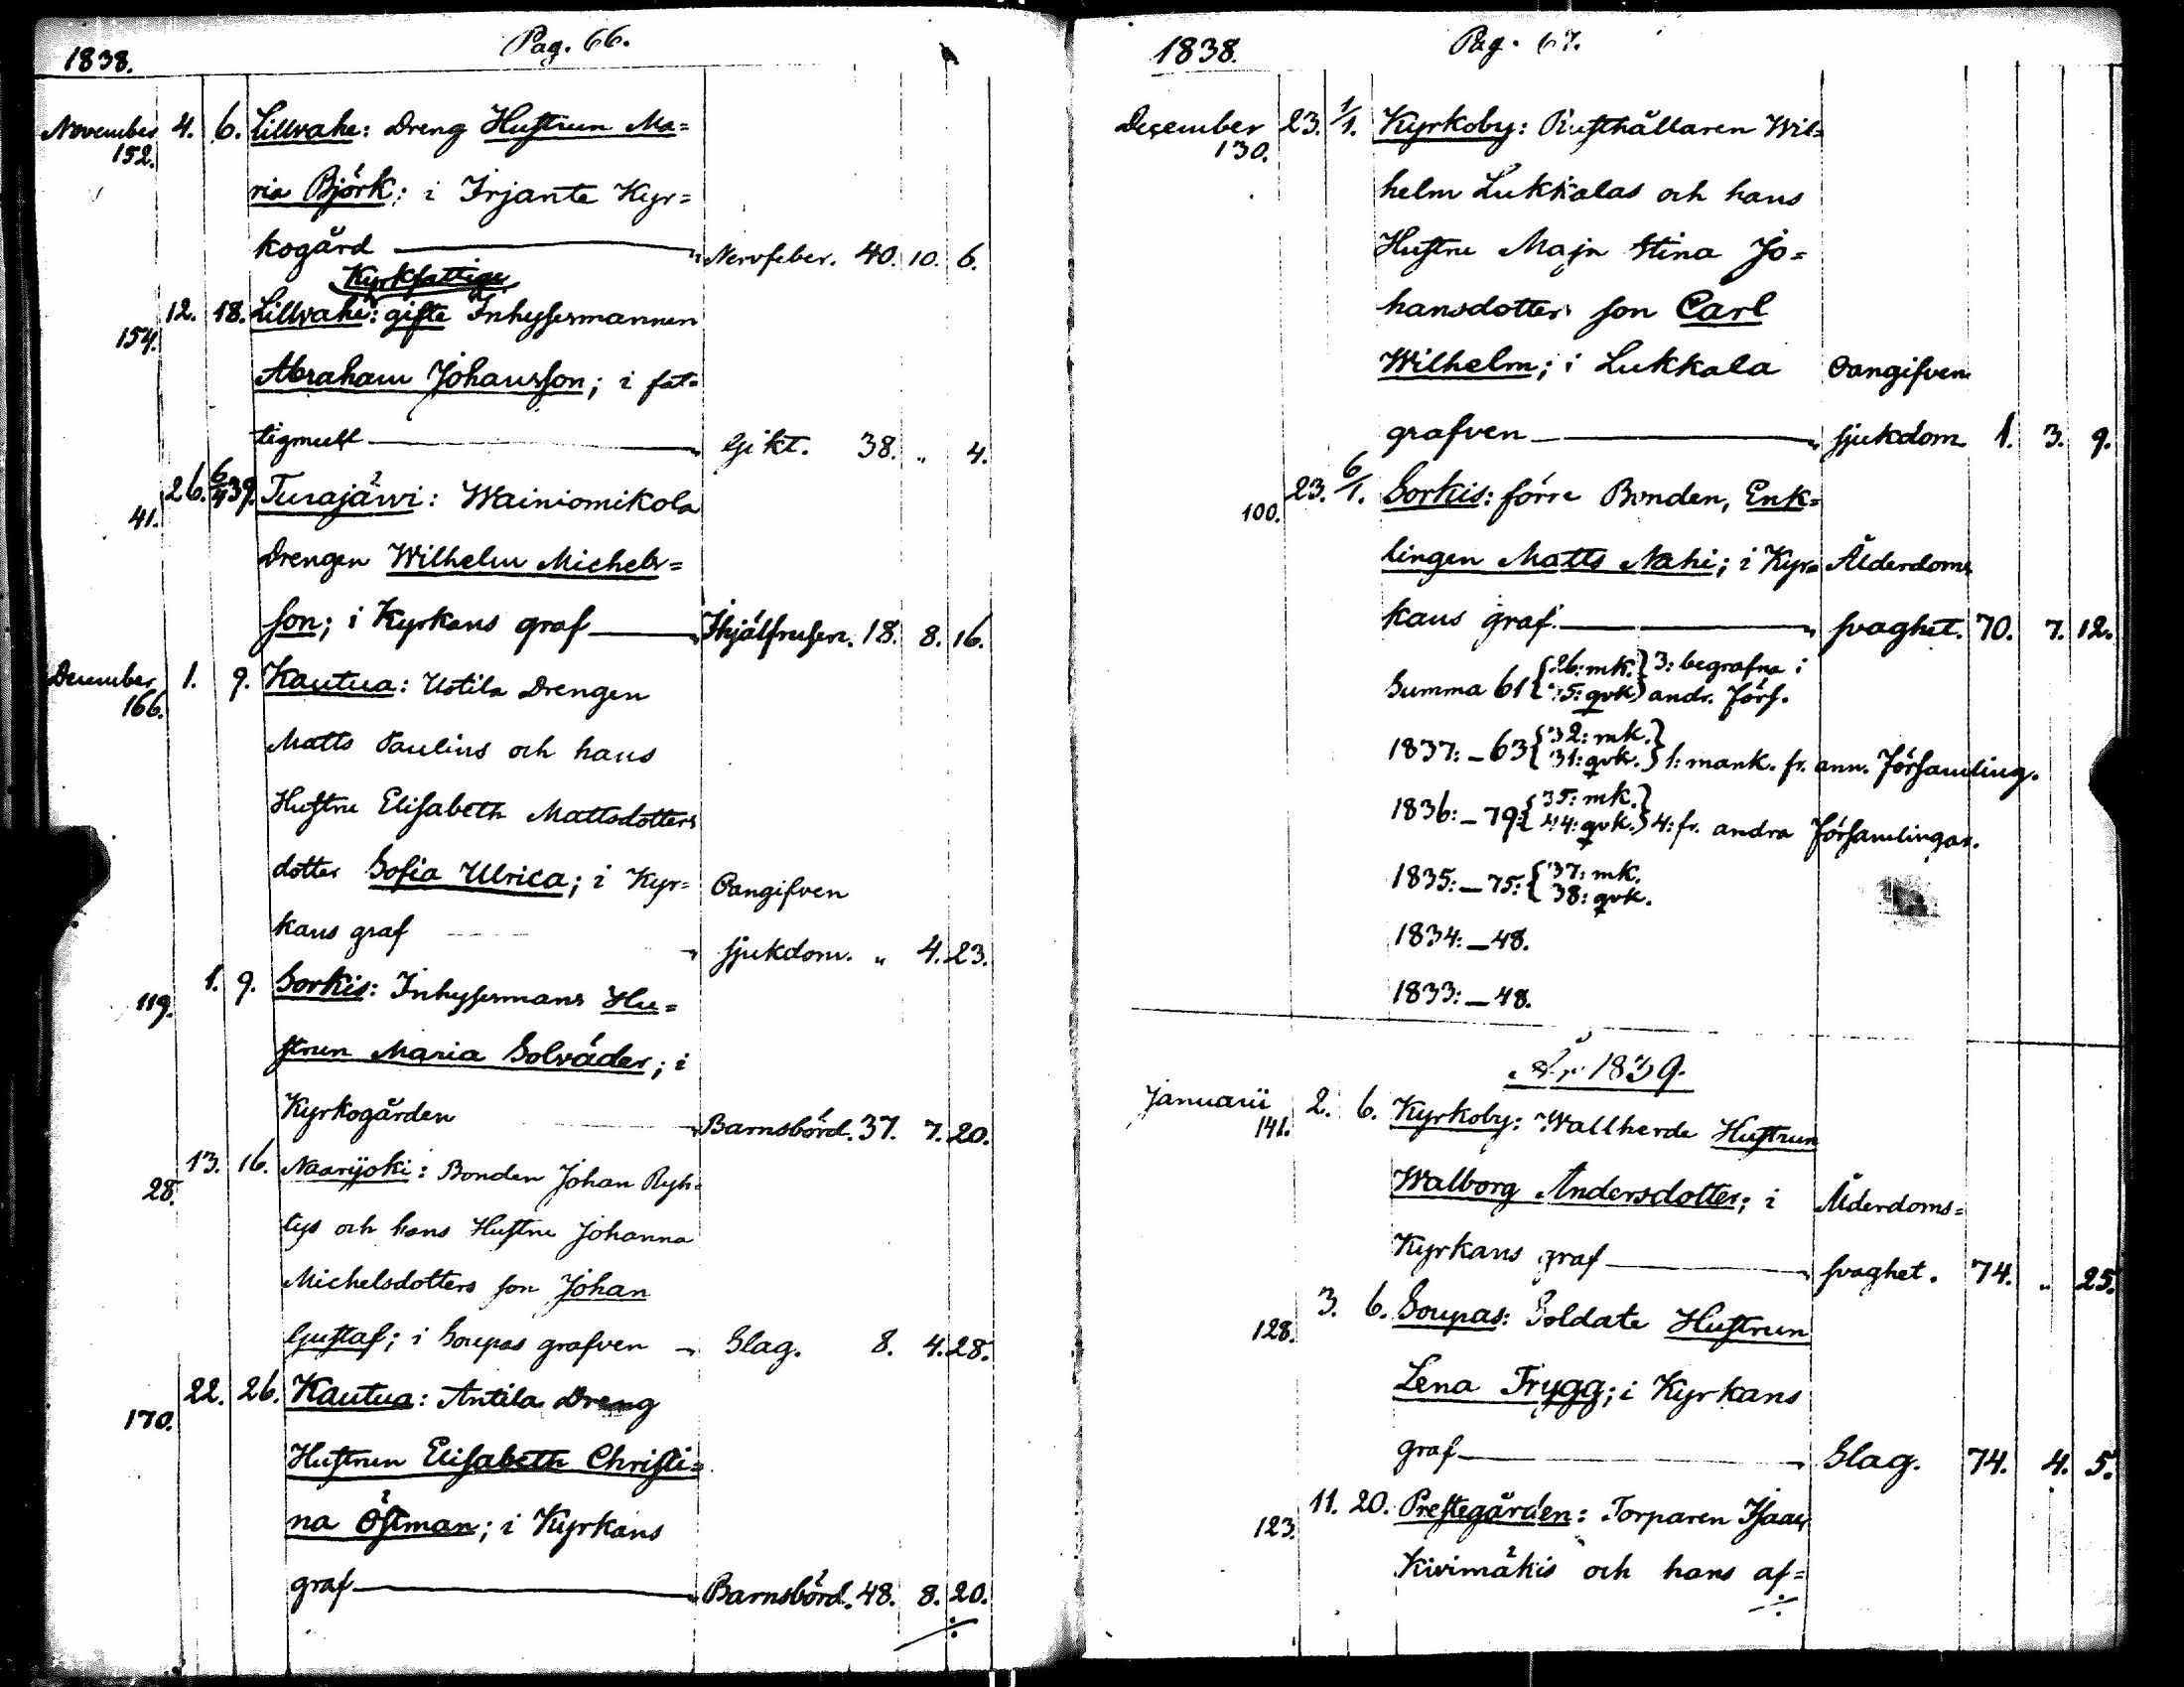 1838. Pag. 66.
November 4. 6. Lillvahe: Dreng Hustrun Ma=
152.
ria Björk; i Irjante Kyr=
kogård — Nervfeber. 40. 10. 6.
Kyrkfattige
12. 18. Lillvahe: gifte Inhysesmannen
154.
Abraham Johansson; i fat=
tigmull — Gikt. 38. " 4.
26. 6/1 39. Turajärvi: Wainiomikola
41.
Drengen Wilhelm Michels=
son; i Kyrkans graf — Ihjälfrusen. 18. 8. 16.
December 1. 9. Kautua: Ustila Drengen
166.
Matts Paulins och hans
Hustru Elisabeth Mattsdotters
dotter Sofia Ulrica; i Kyr= Oangifven
kans graf — sjukdom. " 4. 23.
1. 9. Sorkis: Inhysesmans Hu=
119.
strun Maria Solväder; i
Kyrkogården — Barnsbörd. 37. 7. 20.
13. 16. Naarijoki: Bonden Johan Ryh=
28.
tys och hans Hustru Johanna
Michelsdotters son Johan
Gustaf; i Soupas grafven — Slag. 8. 4. 28.
22. 26. Kautua: Antila Dreng
170.
Hustrun Elisabeth Christi=
na Östman; i Kyrkans
graf — Barnsbörd. 48. 8. 20.
÷
1838. Pag. 67.
December 23. 1/1. Kyrkoby: Rusthållaren Wil=
130.
helm Lukkalas och hans
Hustru Maja Stina Jo=
hansdotters son Carl
Wilhelm; i Lukkala Oangifven
grafven — sjukdom 1. 3. 9.
23. 6/1. Sorkis: förre Bonden, Enk=
100.
lingen Matts Nahi; i Kyr= Ålderdoms
kans graf. — svaghet. 70. 7. 12.
Summa 61 { 26: mk. } 3: begrafne i
35: qvk. andr. förs.
1837: — 63 { 32: mk.
31: qvk. } 1: mank. fr. ann. församling.
1836: — 79: { 35: mk.
44: qvk. } 4: fr. andra församlingar.
1835: — 75: { 37: mk.
38: qvk.
1834: — 48.
1833: — 48.
År 1839.
Januarii 2. 6. Kyrkoby: Wallherde Hustrun
141.
Walborg Andersdotter; i Ålderdoms=
Kyrkans graf — svaghet. 74. " 25.
3. 6. Soupas: Soldate Hustrun
128.
Lena Frygg; i Kyrkans
graf — Slag. 74. 4. 5.
11. 20. Prestegården: Torparen Isaac
123.
Kivimäkis och hans af=
÷